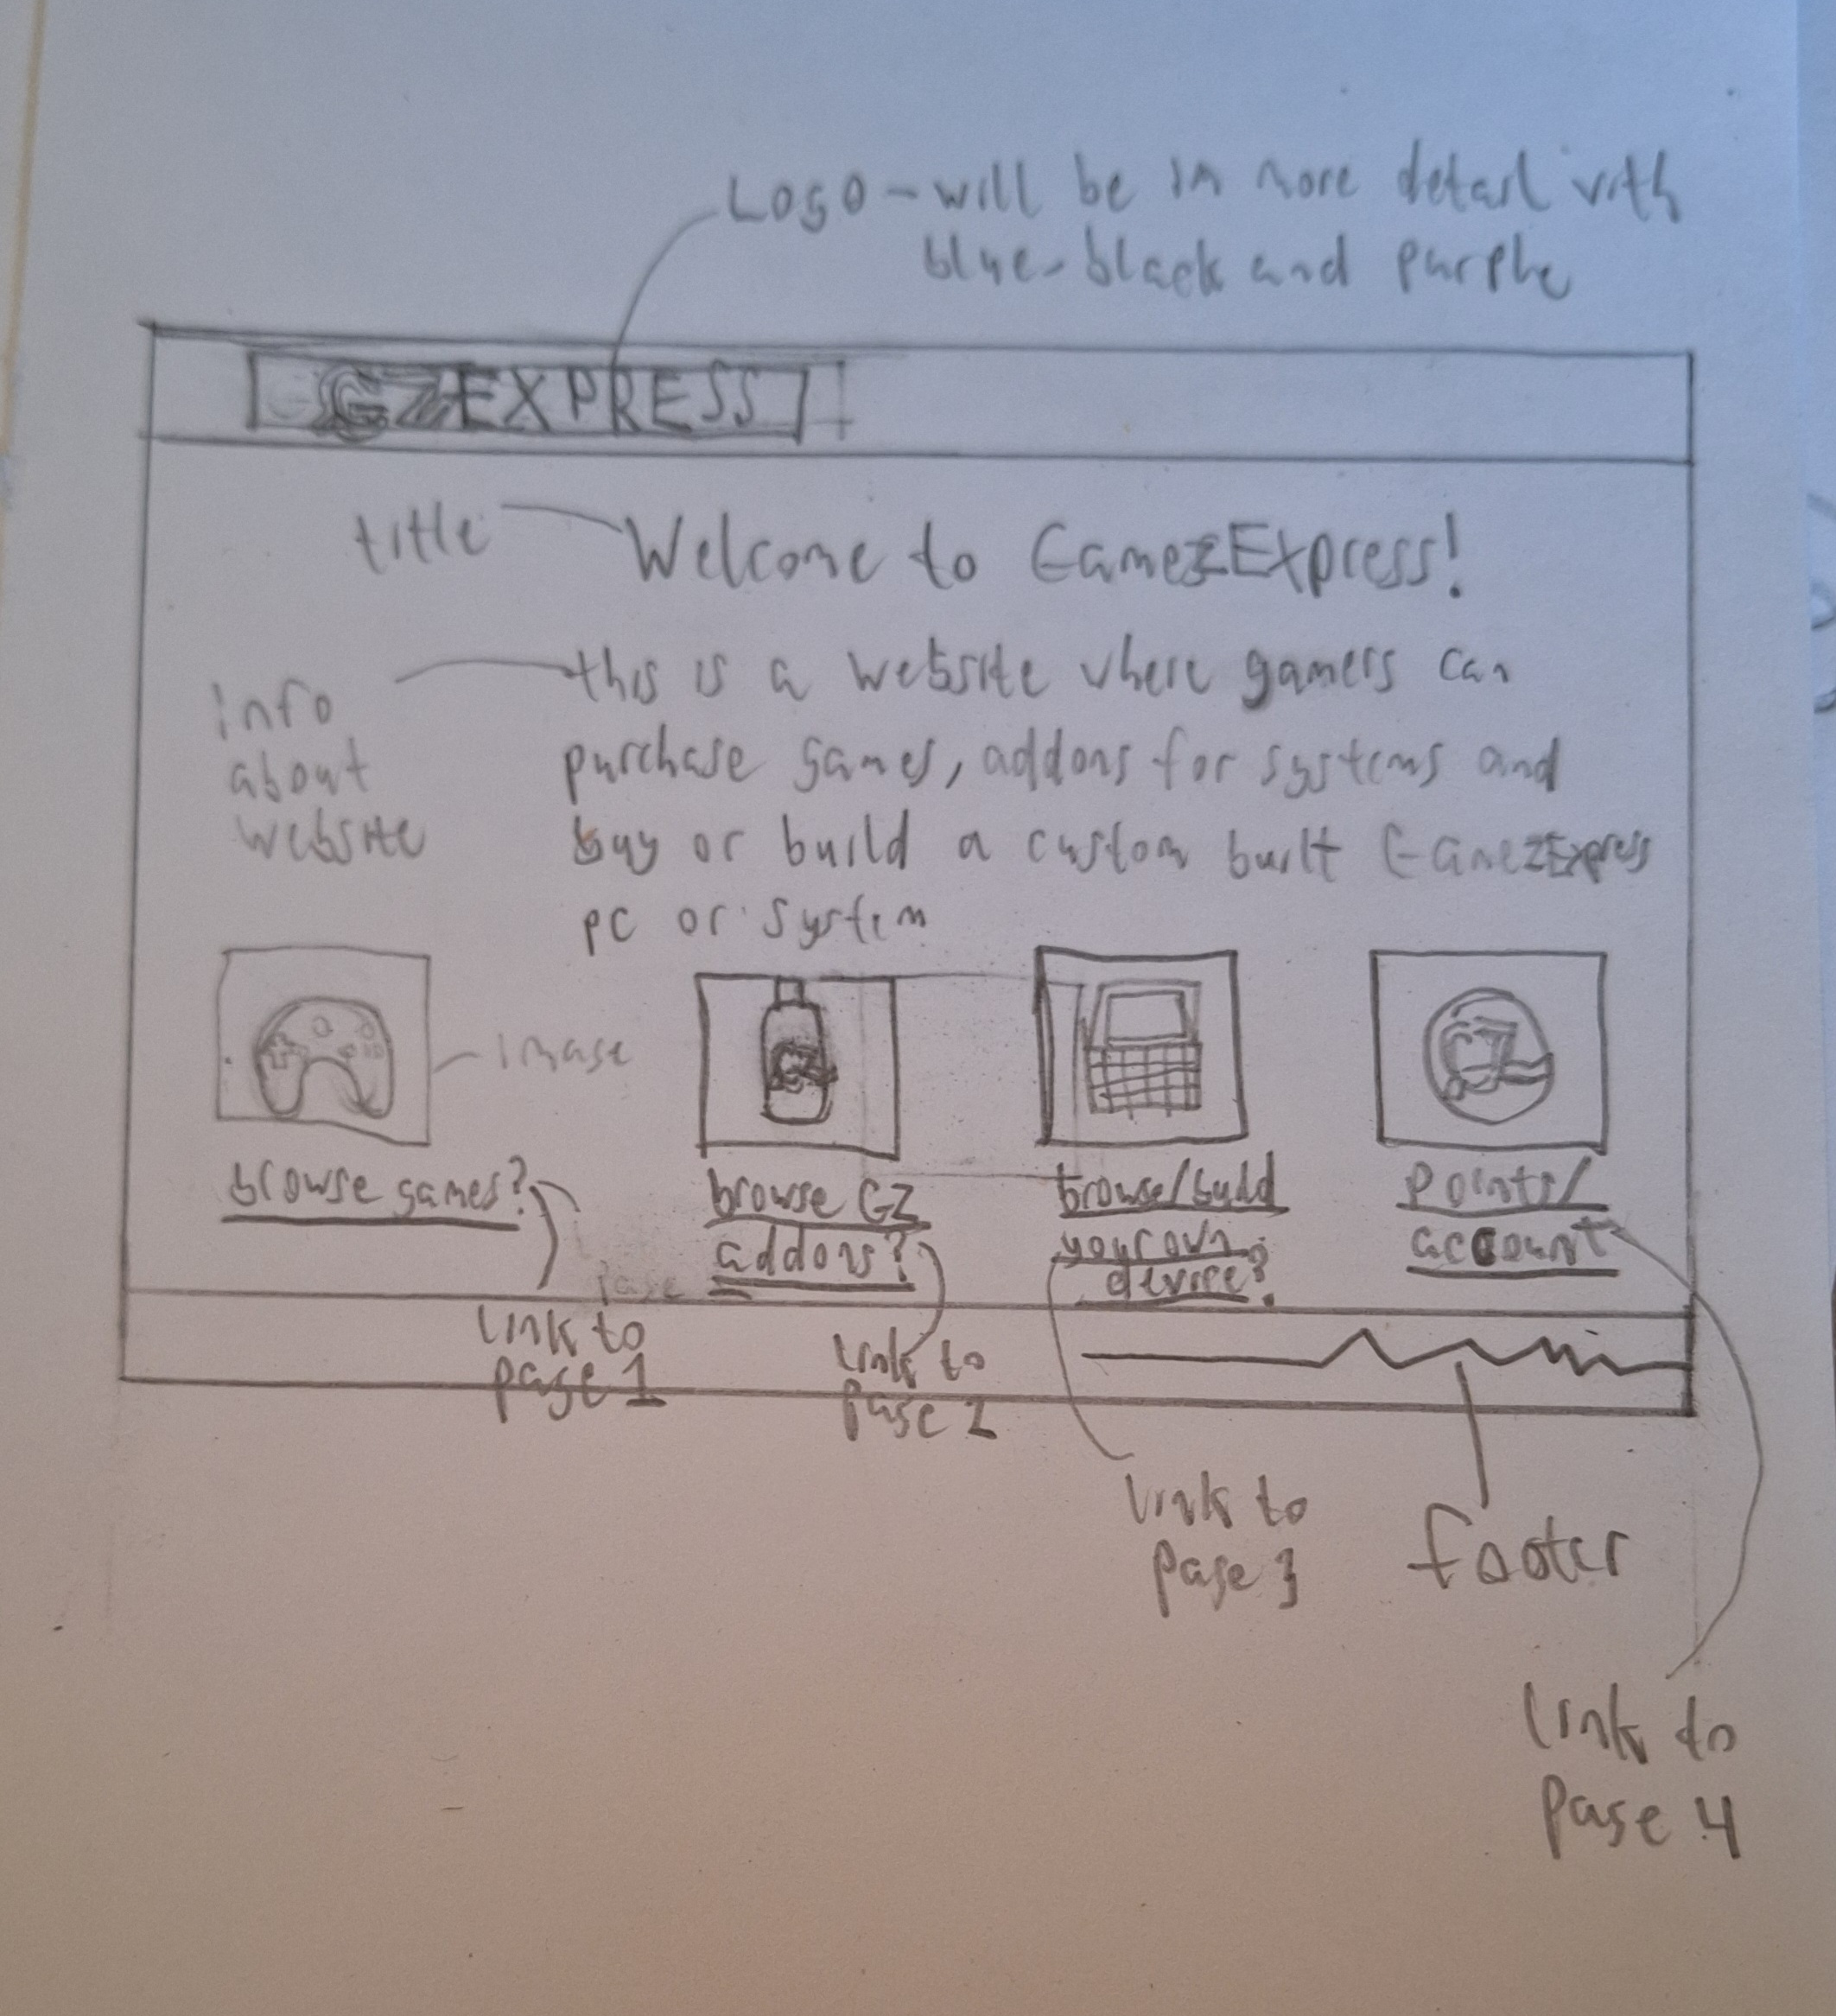 Logo - will be in more detail with
blue-black and purple
GZEXPRESS
title
Welcome to GamezExpress!
info
about
website
this is a website where gamers can
purchase games, addons for systems and
buy or build a custom built GamezExpress
pc or system
image
GZ
browse games?
browse GZ
addons?
browse/build
your own
device?
points/
account
page
link to
page 1
link to
page 2
link to
page 3
footer
link to
page 4